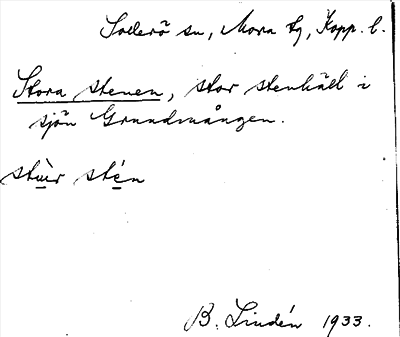 Sollerö sn, Mora tg, Kopp. l.
Stora stenen, stor stenhäll i
sjön Grundmången.
stùr stén
B. Lindén 1933.